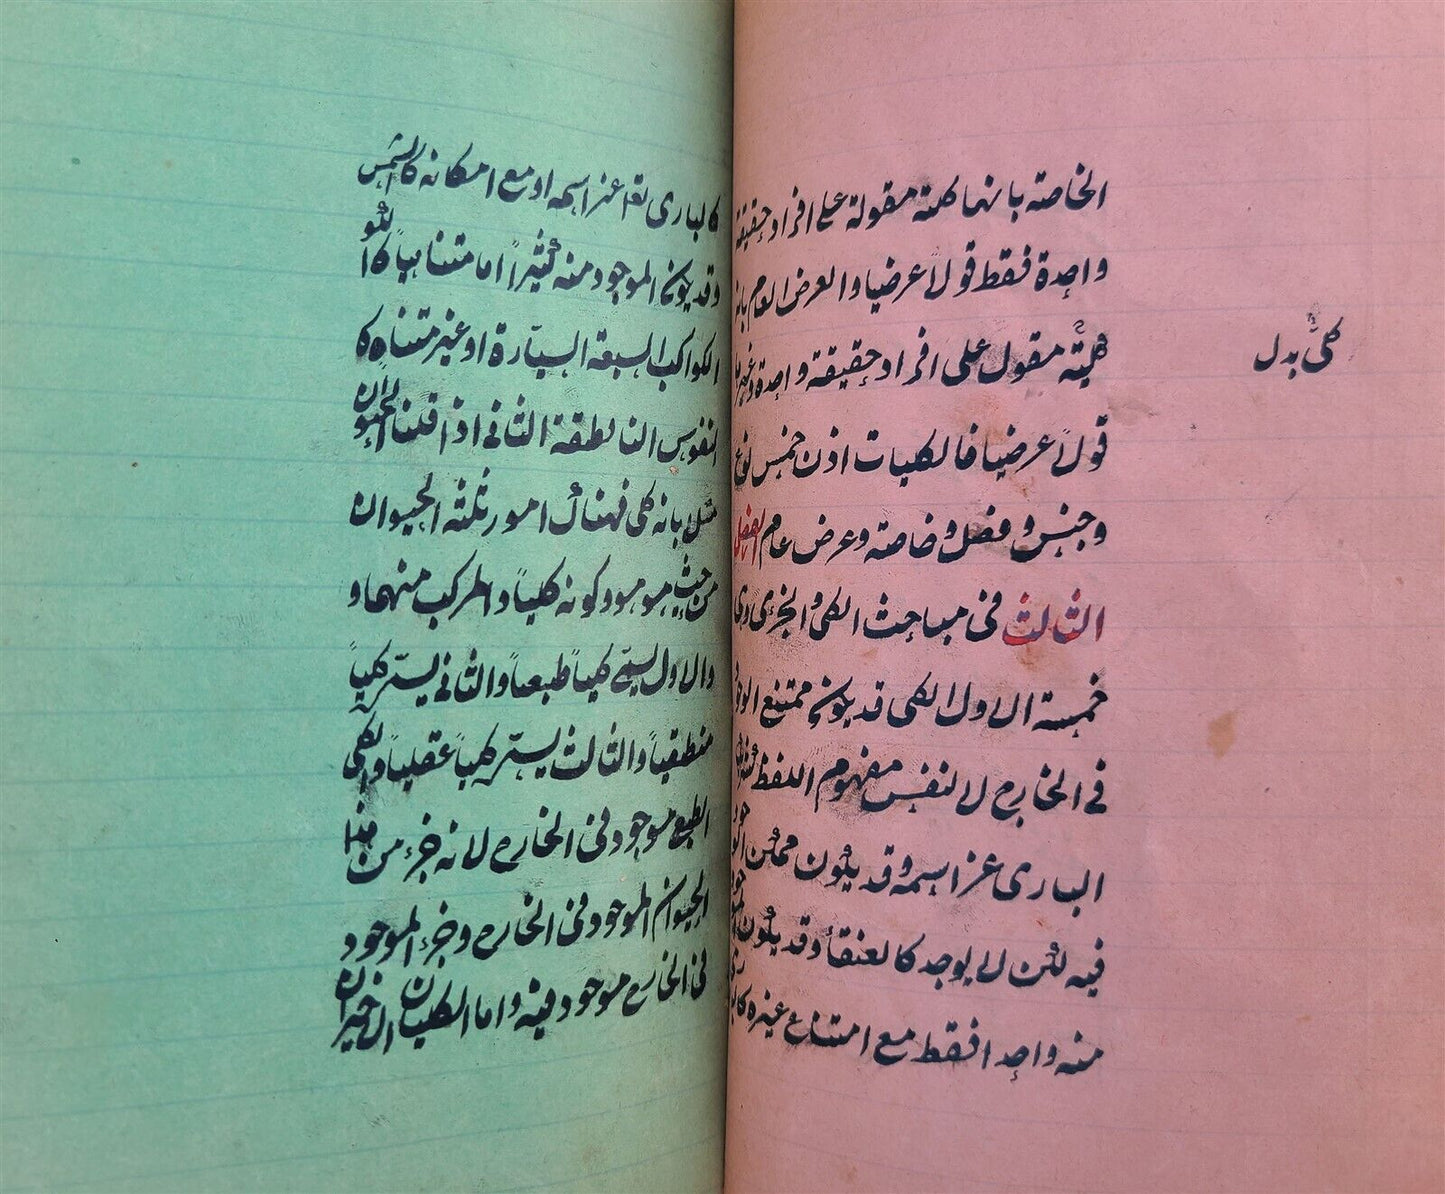 الخاصة بانها كلية مقولة على افراد حقيقة
واحدة فقط قولاً عرضيا والعرض العام بانه
كلية مقول على افراد حقيقة واحدة وغيرها
كلىٌّ بدل
قولاً عرضيا فالكليات اذن خمس نوع
وجنس وفصل وخاصة وعرض عام الفصل
الثالث فى مباحث الكلى والجزئى وهى
خمسة الاول الكلى قد يكون ممتنع الوجود
فى الخارج لا لنفس مفهوم اللفظ كشريك
البارى عز اسمه وقد يكون ممكن الوجود
فيه لكن لا يوجد كالعنقأ وقد يكون الموجود
منه واحدا فقط مع امتناع غيره كالبارى
كالبارى تعا عز اسمه او مع امكانه كالشمس
وقد يكون الموجود منه كثيراً اما متناهياً كا لكو
الكواكب السبعة السيّارة او غير متناه كا
النفوس الناطقة الثانى اذا قلنا الحيوان
مثلا بانه كلى فهناك امور ثلثة الحيوان
من حيث هو هو وكونه كلياً والمركب منهما و
والاول يسمّى كلياً طبعياً والثانى يسمّى كلياً
منطقياً والثالث يسمّى كلياً عقلياً والكلى
الطبعى موجود فى الخارج لانه جزء من هذا
الحيوان الموجود فى الخارج وجزء الموجود
فى الخارج موجود فيه واما الكليان الاخيران